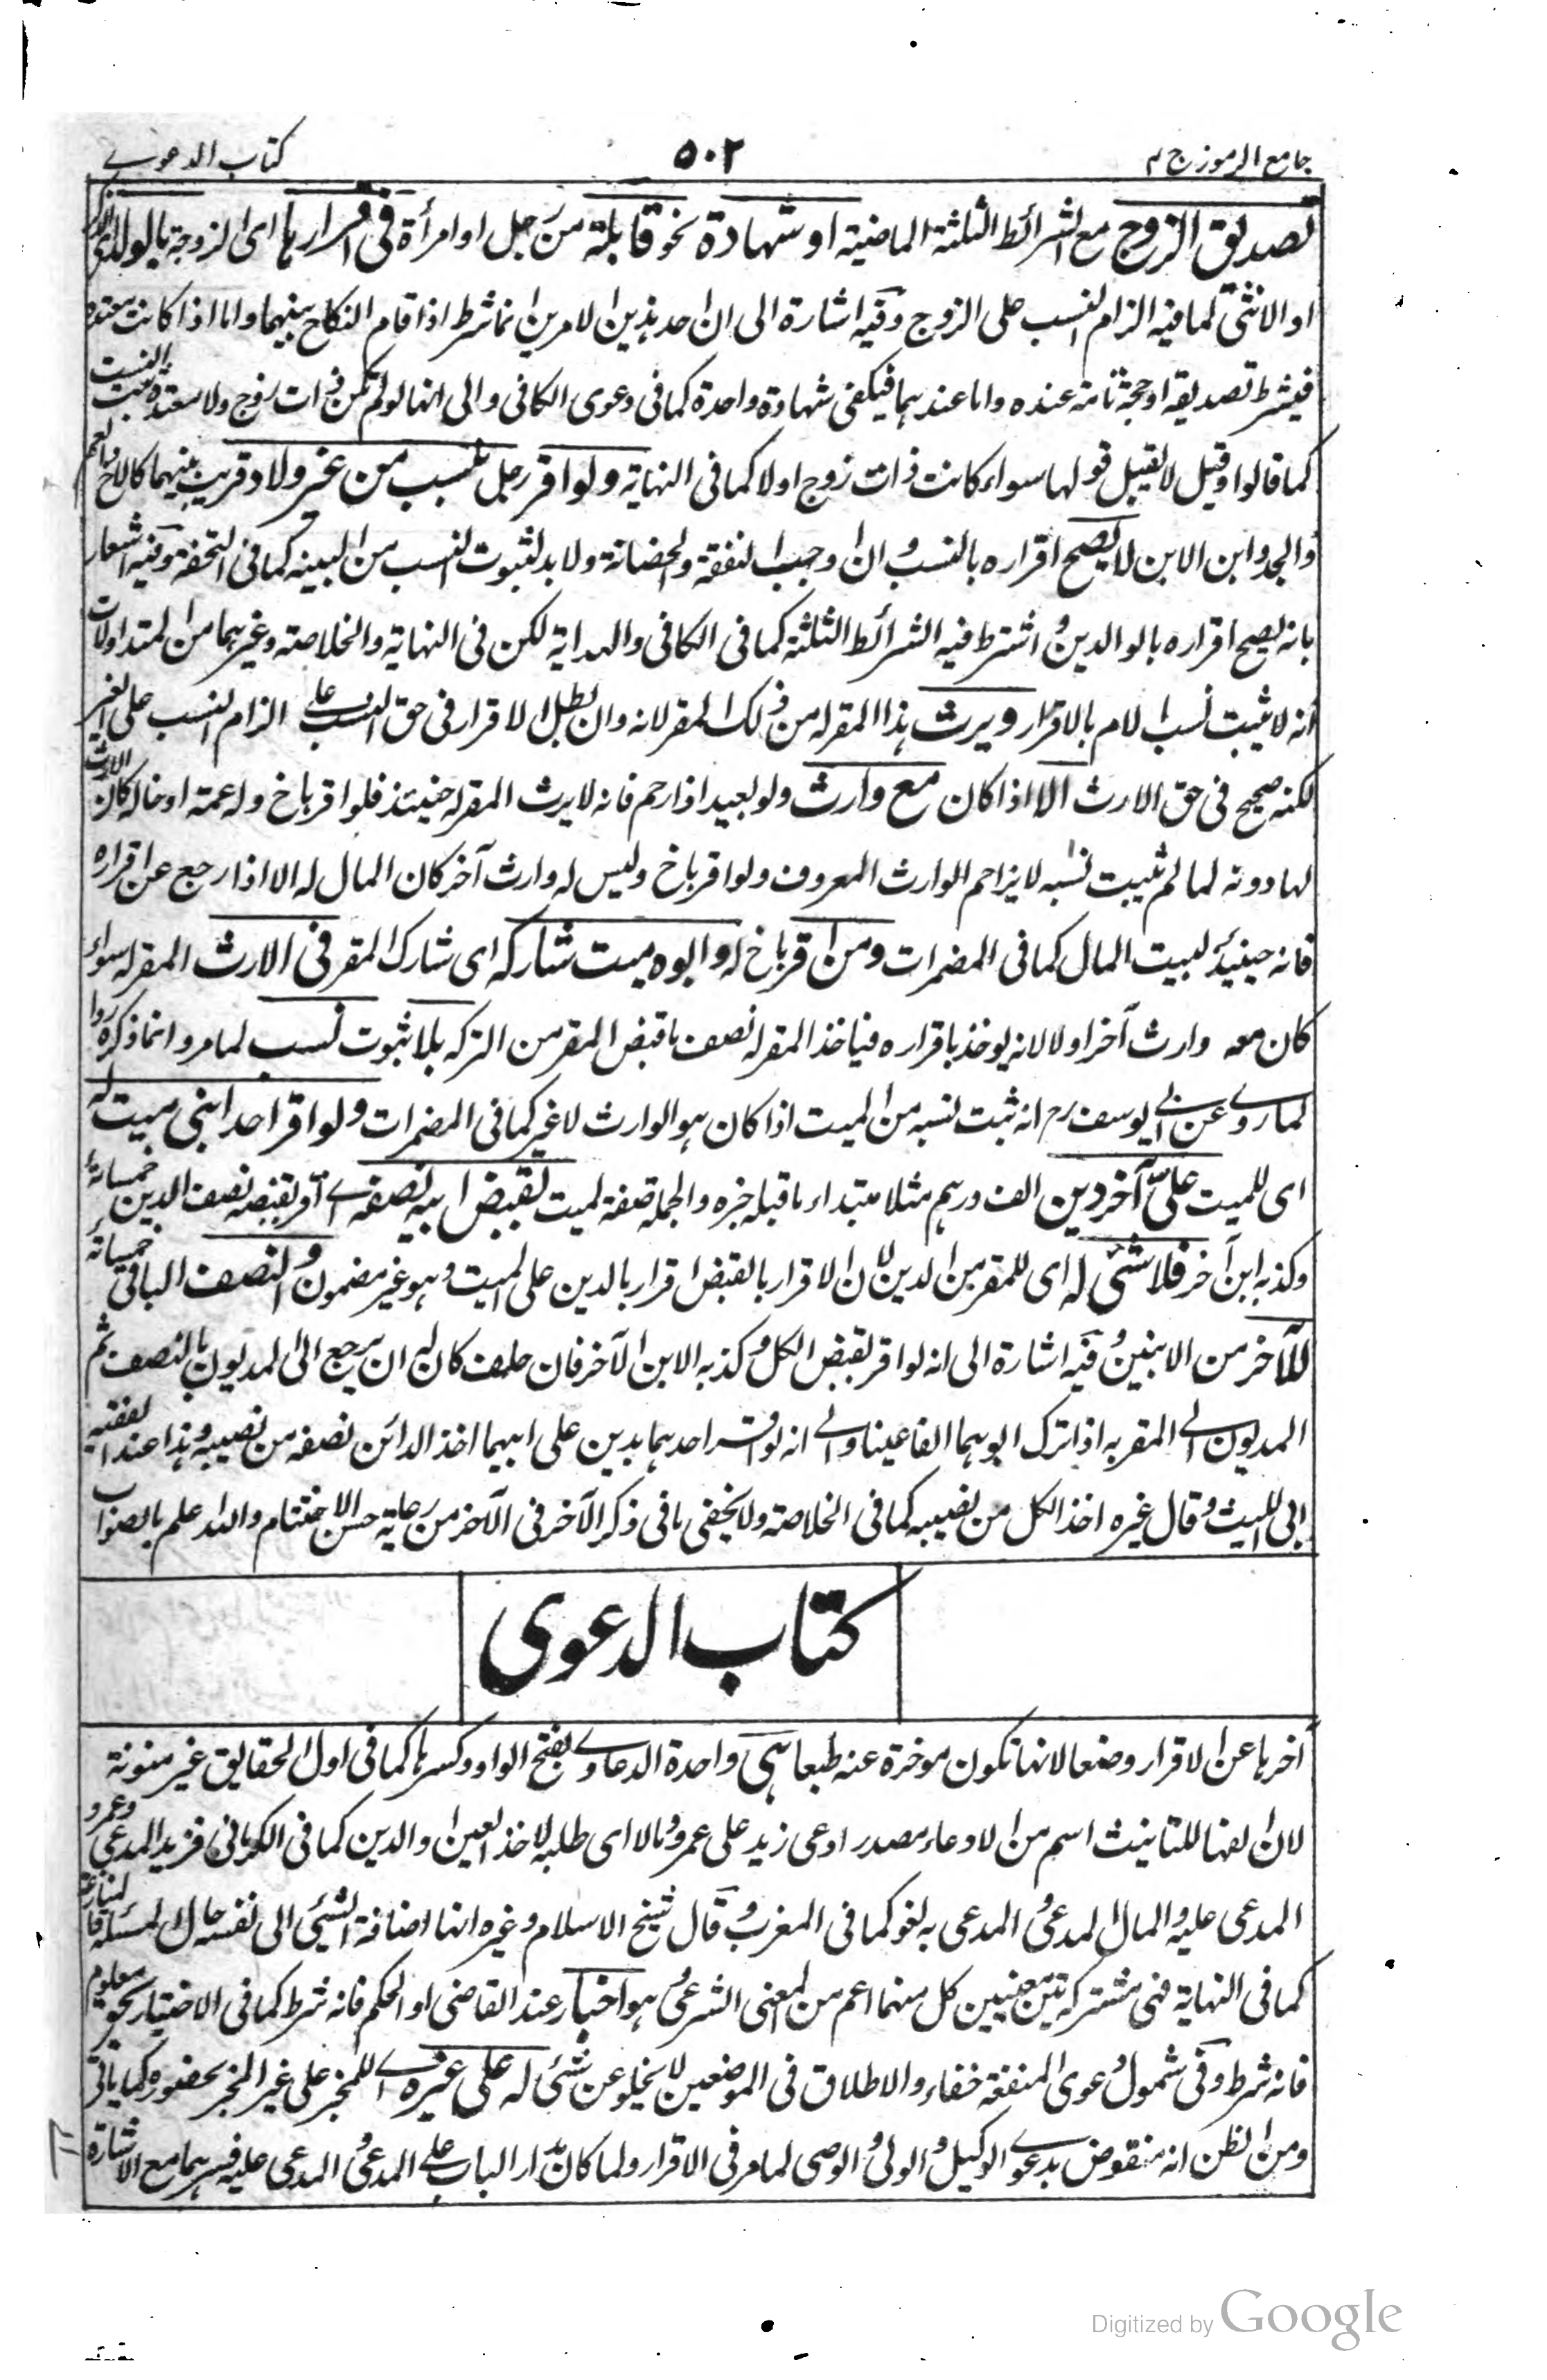 جامع الرموز ج ٢
٥٠٢
كتاب الدعوى
تصديق الزوج مع الشرائط الثلثة الماضية او شهادة نحو قابلة من رجل او امرأة فى اقرارها اى الزوجة بالولد الذكر
او الانثى لما فيه الزام النسب على الزوج وفيه اشارة الى ان احد هذين الامرين انما شرط اذا قام النكاح بينهما واما اذا كانت معتدة
فيشرط تصديقه او حجة تامة عنده واما عندهما فيكفى شهادة واحدة كما فى دعوى الكافى والى انها لو لم تكن ذات زوج ولا معتدة ثبت النسب
كما قالوا وقيل لا يقبل قولها سواء كانت ذات زوج او لا كما فى النهاية ولو اقر رجل بنسب من غير ولاد قريب بينهما كالاخ والعم
والجد وابن الابن لا يصح اقراره بالنسب وان اوجب النفقة والحضانة ولا بد لثبوت النسب من البينة كما فى التحفة وفيه اشعار
بانه يصح اقراره بالوالدين واشترط فيه الشرائط الثلثة كما فى الكافى والهداية لكن فى النهاية والخلاصة وغيرهما من المتداولات
انه لا يثبت نسب الام بالاقرار ويرث هذا المقر له من ذلك المقر لانه وان بطل الاقرار فى حق النسب على الزام النسب على الغير
لكنه صحيح فى حق الارث الا اذا كان مع وارث ولو بعيدا ذا رحم فانه لا يرث المقر له حينئذ فلو اقر باخ وله عمة او خالة كان الارث
لها دونه لما لم يثبت نسبه لا يزاحم الوارث المعروف ولو اقر باخ وليس له وارث آخر كان المال له الا اذا رجع عن اقراره
فانه حينئذ لبيت المال كما فى المضمرات ومن اقر باخ له وابوه ميت شاركه اى شارك المقر فى الارث المقر له سواء
كان معه وارث آخر او لا لانه يوخذ باقراره فياخذ المقر له نصف ما قبض المقر من التركة بلا ثبوت نسب لما مر وانما ذكره ردا
لما روى عن ابى يوسف رح انه ثبت نسبه من الميت اذا كان هو الوارث لا غير كما فى المضمرات ولو اقر احد ابنى ميت له
اى للميت على آخر دين الف درهم مثلا مبتداء ما قبله خبره والجملة صفة لميت بقبض ابيه نصفه اى اقر بقبضه نصف الدين خمسمائة
وكذبه ابن آخر فلا شئ له اى للمقر من الدين لان الاقرار بالقبض اقرار بالدين على الميت وهو غير مضمون والنصف الباقى خمسمائة
للآخر من الابنين وفيه اشارة الى انه لو اقر بقبض الكل وكذبه الابن الآخر فان حلف كان له ان يرجع الى المديون بالنصف ثم
المديون الى المقر به اذا ترك ابوهما الفا عينا والى انه لو اقر احدهما بدين على ابيهما اخذ الدائن نصفه من نصيبه وهذا عند الفقيه
ابى الليث وقال غيره اخذ الكل من نصيبه كما فى الخلاصة ولا يخفى ما فى ذكر الآخر فى الآخر من رعاية حسن الاختتام والله اعلم بالصواب
كتاب الدعوى
أخرها عن الاقرار وضعا لانها تكون موخرة عنه طبعا هى واحدة الدعاوى بفتح الواو وكسرها كما فى اول الحقايق غير منونة
لان الفها للتانيث اسم من الادعاء مصدر ادعى زيد على عمرو مالا اى طلبه لاخذ العين او الدين كما فى الكرمانى فزيد المدعى وعمرو
المدعى عليه والمال المدعى والمدعى به لغو كما فى المغرب وقال شيخ الاسلام وغيره انها اضافة الشئ الى نفسه حال المسئلة
كما فى النهاية فهى مشتركة بين معنيين كل منهما اعم من المعنى الشرعى هو اخبار عند القاضى او الحكم فانه شرط كما فى الاختيار بحق معلوم
فانه شرط وفى شمول دعوى المنفعة خفاء والاطلاق فى الموضعين لا يخلو عن شئ له على غيره اى للمخبر على غير المخبر بحضوره كما ياتى
ومن الظن انه منقوض بدعوى الوكيل والولى والوصى لما مر فى الاقرار ولما كان مدار الباب على المدعى والمدعى عليه فسرهما مع الاشارة
Digitized by Google